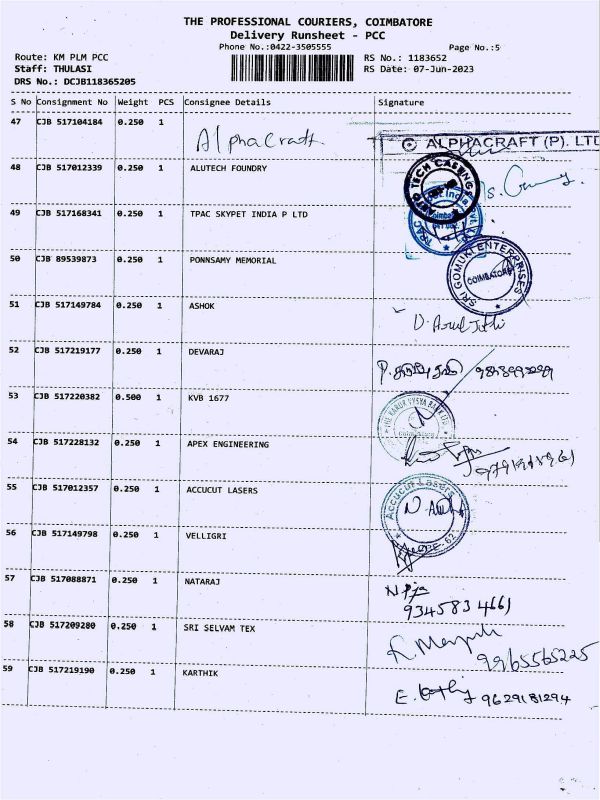 THE PROFESSIONAL COURIERS, COIMBATORE
Delivery Runsheet - PCC
Phone No.:0422-3505555
Page No.:5
Route: KM PLM PCC
RS No.: 1183652
Staff: THULASI
RS Date: 07-Jun-2023
DRS No.: DCJB118365205
S No Consignment No Weight PCS Consignee Details Signature
47 CJB 517104184 0.250 1 Alphacraft. ALPHACRAFT (P). LTD
48 CJB 517012339 0.250 1 ALUTECH FOUNDRY
AUTO TECH CASTINGS
49 CJB 517168341 0.250 1 TPAC SKYPET INDIA P LTD
50 CJB 89539873 0.250 1 PONNSAMY MEMORIAL
SRI GOMUKI ENTERPRISES
COIMBATORE
51 CJB 517149784 0.250 1 ASHOK
52 CJB 517219177 0.250 1 DEVARAJ
53 CJB 517220382 0.500 1 KVB 1677
THE KARUR VYSYA BANK LTD
54 CJB 517228132 0.250 1 APEX ENGINEERING
55 CJB 517012357 0.250 1 ACCUCUT LASERS
Accucut Lasers
56 CJB 517149798 0.250 1 VELLIGRI
57 CJB 517088871 0.250 1 NATARAJ
9345834661
58 CJB 517209280 0.250 1 SRI SELVAM TEX
9965565225
59 CJB 517219190 0.250 1 KARTHIK
9629181294